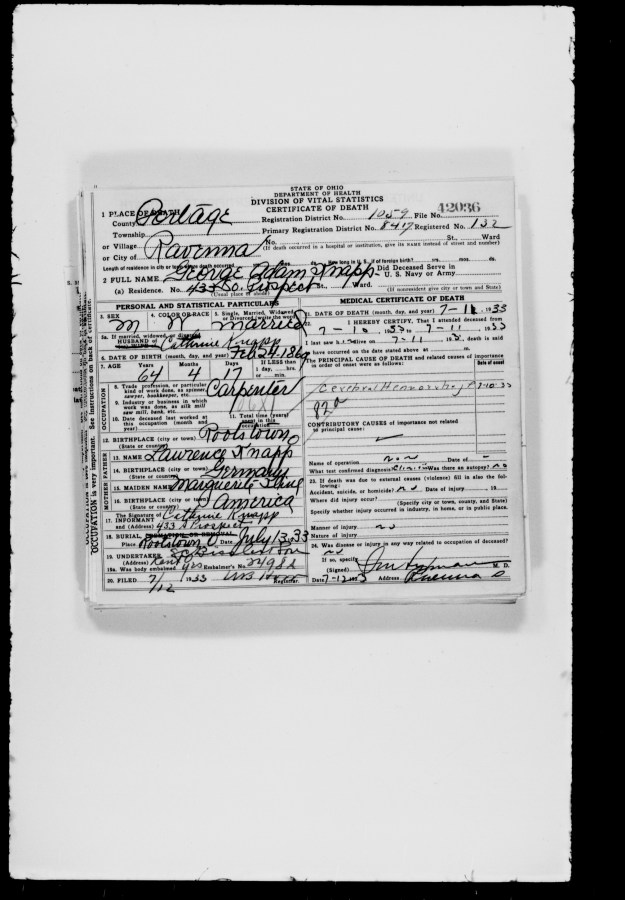 STATE OF OHIO
DEPARTMENT OF HEALTH
DIVISION OF VITAL STATISTICS
CERTIFICATE OF DEATH
1 PLACE OF DEATH
County Portage Registration District No. 1059 File No. 42036
Township Primary Registration District No. 8417 Registered No. 132
or Village No. St., Ward
or City of Ravenna (If death occurred in a hospital or institution, give its NAME instead of street and number)
Length of residence in city or town where death occurred yrs. mos. ds. How long in U. S., if of foreign birth? yrs. mos. ds.
2 FULL NAME George Adam Knapp Did Deceased Serve in U. S. Navy or Army
(a) Residence. No. 433 So. Prospect St., Ward.
(Usual place of abode) (If nonresident give city or town and State)
PERSONAL AND STATISTICAL PARTICULARS
3. SEX 4. COLOR OR RACE 5. Single, Married, Widowed, or Divorced (write the word)
m W married
5a. If married, widowed, or divorced
HUSBAND of Catherine Knapp
6. DATE OF BIRTH (month, day, and year) Feb 24 1869
7. AGE Years Months Days If LESS than
64 4 17 1 day, hrs.
or min.
OCCUPATION
8. Trade, profession, or particular kind of work done, as spinner, sawyer, bookkeeper, etc. Carpenter
9. Industry or business in which work was done, as silk mill, saw mill, bank, etc.
10. Date deceased last worked at this occupation (month and year)
11. Total time (years) spent in this occupation
12. BIRTHPLACE (city or town) Rootstown O
(State or country)
MOTHER FATHER
13. NAME Lawrence Knapp
14. BIRTHPLACE (city or town) Germany
(State or country)
15. MAIDEN NAME Marguerite
16. BIRTHPLACE (city or town) America
(State or country)
The Signature of Catherine Knapp
17. INFORMANT
and (Address) 433 S Prospect
18. BURIAL, CREMATION OR REMOVAL
Place Rootstown O Date July 13, 33
19. UNDERTAKER
(Address) Kent O
19a. Was body embalmed yes Embalmer's No. 2498 a
20. FILED 7/12 1933 Registrar.
MEDICAL CERTIFICATE OF DEATH
21. DATE OF DEATH (month, day, and year) 7-11, 1933
22. I HEREBY CERTIFY, That I attended deceased from
7-10 1933 to 7-11, 1933
I last saw h alive on 7-11, 193 death is said
to have occurred on the date stated above at m.
The PRINCIPAL CAUSE OF DEATH and related causes of importance in order of onset were as follows:
Date of onset
Cerebral Hemorrhage 7-10-33
82a
CONTRIBUTORY CAUSES of importance not related to principal cause:
Name of operation non Date of -
What test confirmed diagnosis? Clinical Was there an autopsy? no
23. If death was due to external causes (violence) fill in also the following:
Accident, suicide, or homicide? no Date of injury 19
Where did injury occur?
(Specify city or town, county, and State)
Specify whether injury occurred in industry, in home, or in public place.
Manner of injury no
Nature of injury
24. Was disease or injury in any way related to occupation of deceased?
no
If so, specify
(Signed) M. D.
Date 7-12 1933 Address Ravenna O
OCCUPATION is very important. See instructions on back of certificate.